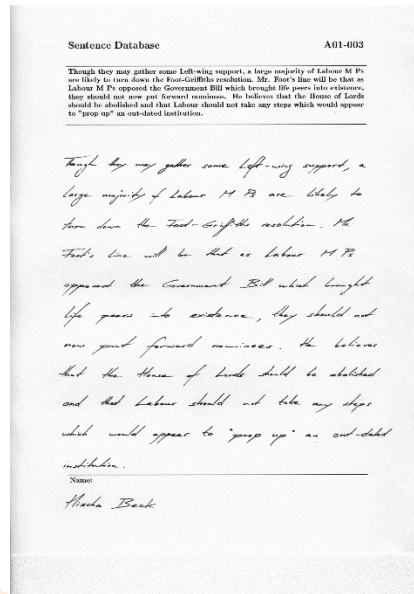 Sentence Database A01-003
Though they may gather some Left-wing support, a large majority of Labour M Ps
are likely to turn down the Foot-Griffiths resolution. Mr. Foot's line will be that as
Labour M Ps opposed the Government Bill which brought life peers into existence,
they should not now put forward nominees. He believes that the House of Lords
should be abolished and that Labour should not take any steps which would appear
to "prop up" an out-dated institution.
Though they may gather some Left-wing support, a
large majority of Labour M Ps are likely to
turn down the Foot-Griffiths resolution. Mr.
Foot's line will be that as Labour M Ps
opposed the Government Bill which brought
life peers into existence, they should not
now put forward nominees. He believes
that the House of Lords should be abolished
and that Labour should not take any steps
which would appear to "prop up" an out-dated
institution.
Name:
Mischa Beck